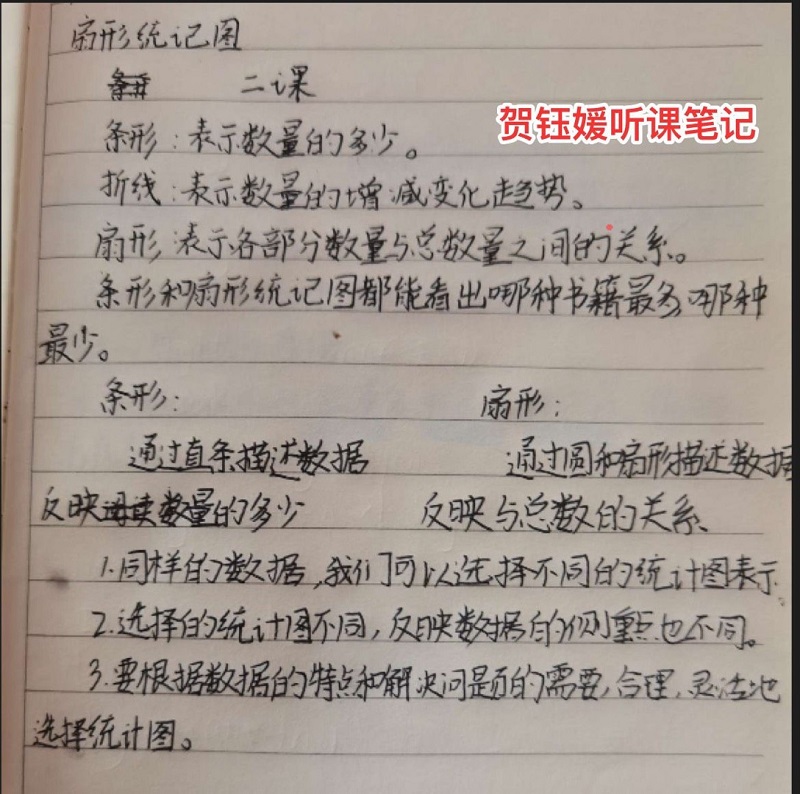 扇形统记图
二课
贺钰媛听课笔记
条形:表示数量的多少。
折线:表示数量的增减变化趋势。
扇形:表示各部分数量与总数量之间的关系。
条形和扇形统记图都能看出哪种书籍最多,哪种
最少。
条形: 扇形:
通过直条描述数据 通过圆和扇形描述数据
反映数量的多少 反映与总数的关系
1.同样的数据,我们可以选择不同的统计图表示.
2.选择的统计图不同,反映数据的侧重点也不同。
3.要根据数据的特点和解决问题的需要,合理,灵活地
选择统计图。